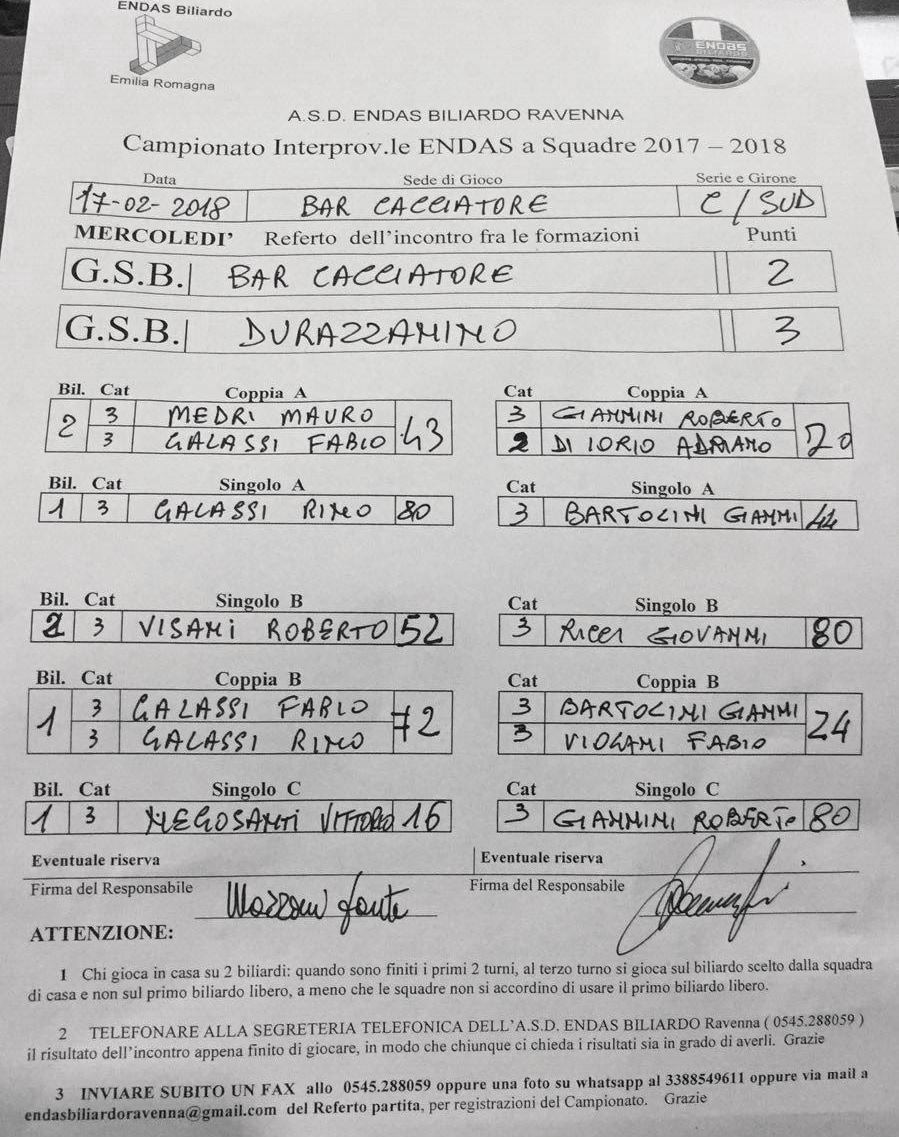 ENDAS Biliardo
Emilia Romagna
ENDAS
BILIARDO
A.S.D. ENDAS BILIARDO RAVENNA
Campionato Interprov.le ENDAS a Squadre 2017 – 2018
Data Sede di Gioco Serie e Girone
17-02-2018 BAR CACCIATORE C / SUD
MERCOLEDI' Referto dell'incontro fra le formazioni Punti
G.S.B. BAR CACCIATORE 2
G.S.B. DURAZZANINO 3
Bil. Cat Coppia A Cat Coppia A
2 3 MEDRI MAURO 43 3 GIANNINI ROBERTO 20
3 GALASSI FABIO 2 DI IORIO ADRIANO
Bil. Cat Singolo A Cat Singolo A
1 3 GALASSI RINO 80 3 BARTOLINI GIANNI 44
Bil. Cat Singolo B Cat Singolo B
2 3 VISANI ROBERTO 52 3 RICCI GIOVANNI 80
Bil. Cat Coppia B Cat Coppia B
1 3 GALASSI FABIO 72 3 BARTOLINI GIANNI 24
3 GALASSI RINO 3 VIOLANI FABIO
Bil. Cat Singolo C Cat Singolo C
1 3 NEGOSANTI VITTORIO 16 3 GIANNINI ROBERTO 80
Eventuale riserva Eventuale riserva
Firma del Responsabile Firma del Responsabile
ATTENZIONE:
1 Chi gioca in casa su 2 biliardi: quando sono finiti i primi 2 turni, al terzo turno si gioca sul biliardo scelto dalla squadra
di casa e non sul primo biliardo libero, a meno che le squadre non si accordino di usare il primo biliardo libero.
2 TELEFONARE ALLA SEGRETERIA TELEFONICA DELL'A.S.D. ENDAS BILIARDO Ravenna ( 0545.288059 )
il risultato dell'incontro appena finito di giocare, in modo che chiunque ci chieda i risultati sia in grado di averli. Grazie
3 INVIARE SUBITO UN FAX allo 0545.288059 oppure una foto su whatsapp al 3388549611 oppure via mail a
endasbiliardoravenna@gmail.com del Referto partita, per registrazioni del Campionato. Grazie